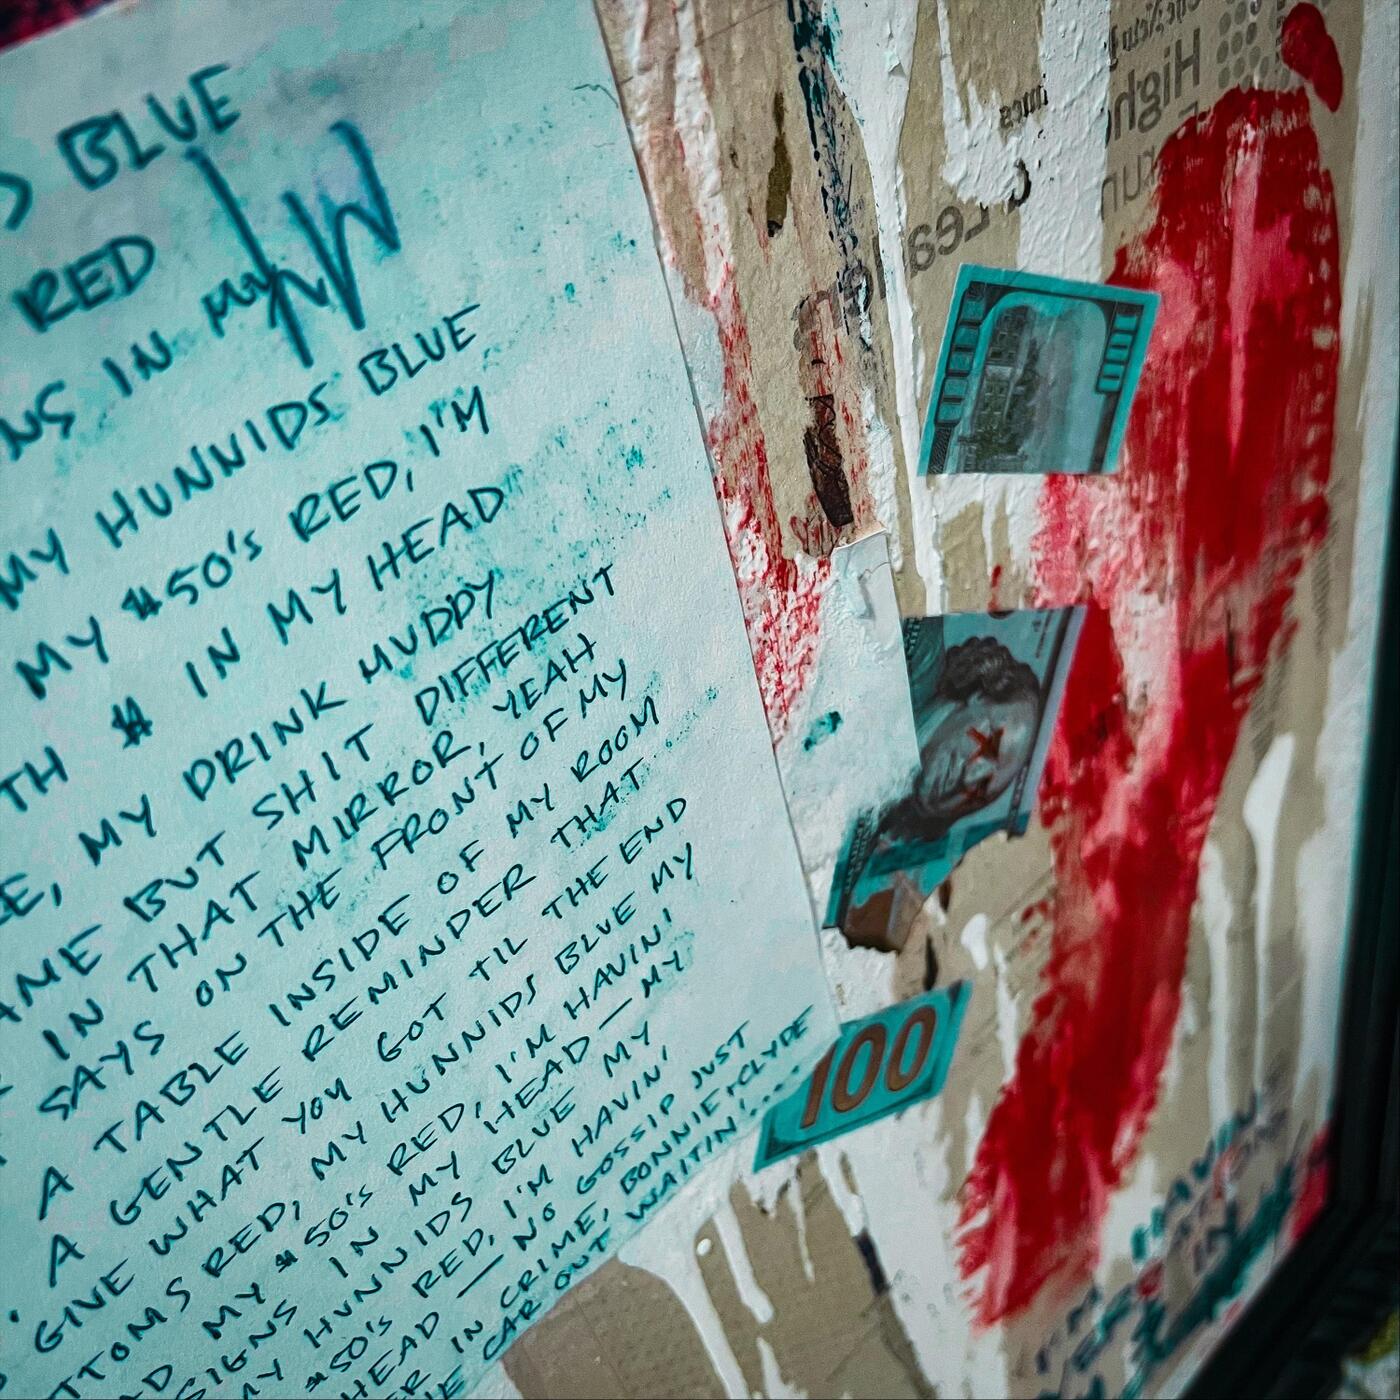 BLUE
RED
IN MY
MY HUNNIDS BLUE
MY $50'S RED, I'M
$ IN MY HEAD
MY DRINK MUDDY
BUT SHIT DIFFERENT
IN THAT MIRROR, YEAH
SAYS ON THE FRONT OF MY
A TABLE INSIDE OF MY ROOM
A GENTLE REMINDER THAT
GIVE WHAT YOU GOT TIL THE END
RED, MY HUNNIDS BLUE MY
MY $50'S RED, I'M HAVIN'
SIGNS IN MY HEAD — MY
MY HUNNIDS BLUE MY
$50'S RED, I'M HAVIN'
HEAD — NO GOSSIP JUST
IN CRIME, BONNIE + CLYDE
CAR OUT WAITIN'....
High
100
100
I'M HAVIN
IN